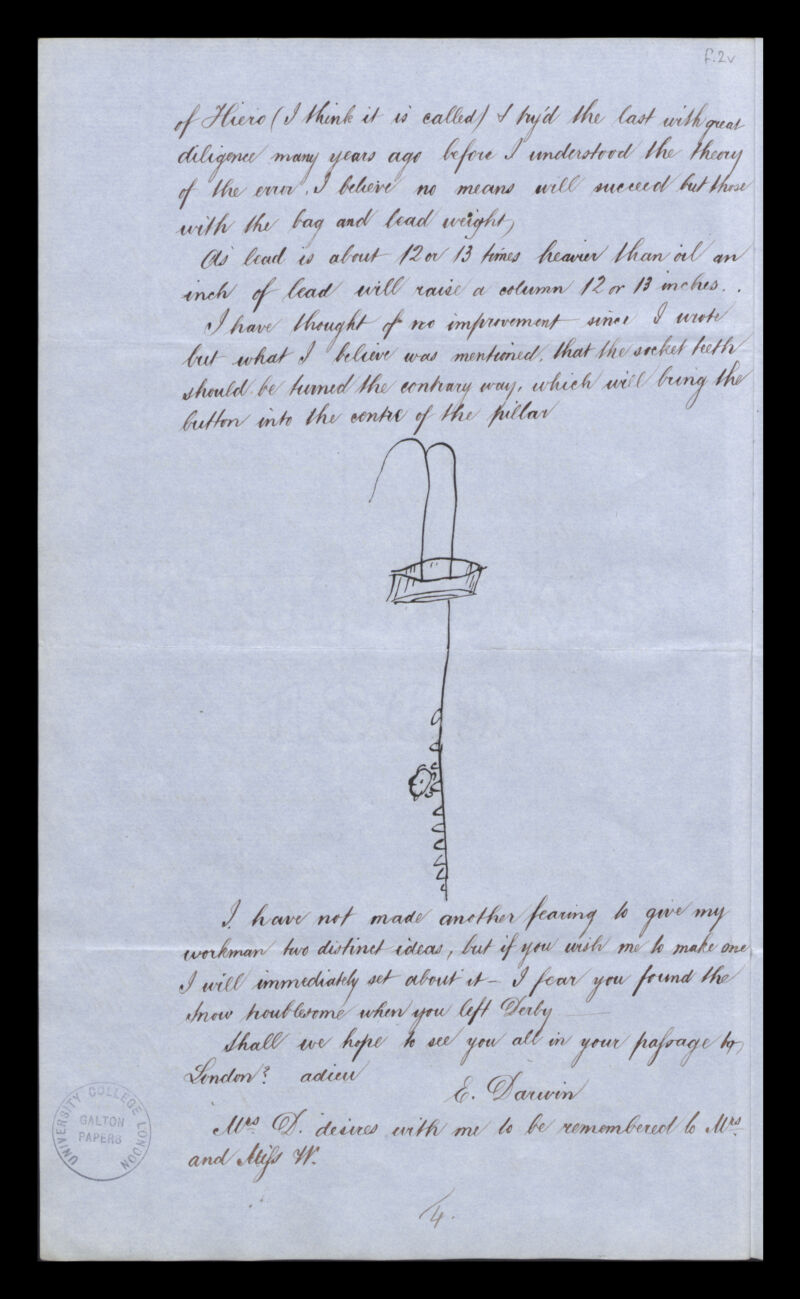 f.2v
of Hiero (I think it is called) I try'd the last with great
diligence many years ago before I understood the theory
of the error. I believe no means will succeed but those
with the bag and lead weight,
As lead is about 12 or 13 times heavier than oil an
inch of lead will raise a column 12 or 13 inches..
I have thought of no improvement since I wrote
but what I believe was mentioned, that the socket teeth
should be turned the contrary way, which will bring the
button into the centre of the pillar
I have not made another fearing to give my
workman two distinct ideas, but if you wish me to make one
I will immediately set about it – I fear you found the
Snow troublesome when you left Derby
Shall we hope to see you all in your passage to
London? adieu
E. Darwin
Mrs D. desires with me to be remembered to Mrs
and Miss W.
4.
UNIVERSITY COLLEGE LONDON
GALTON
PAPERS